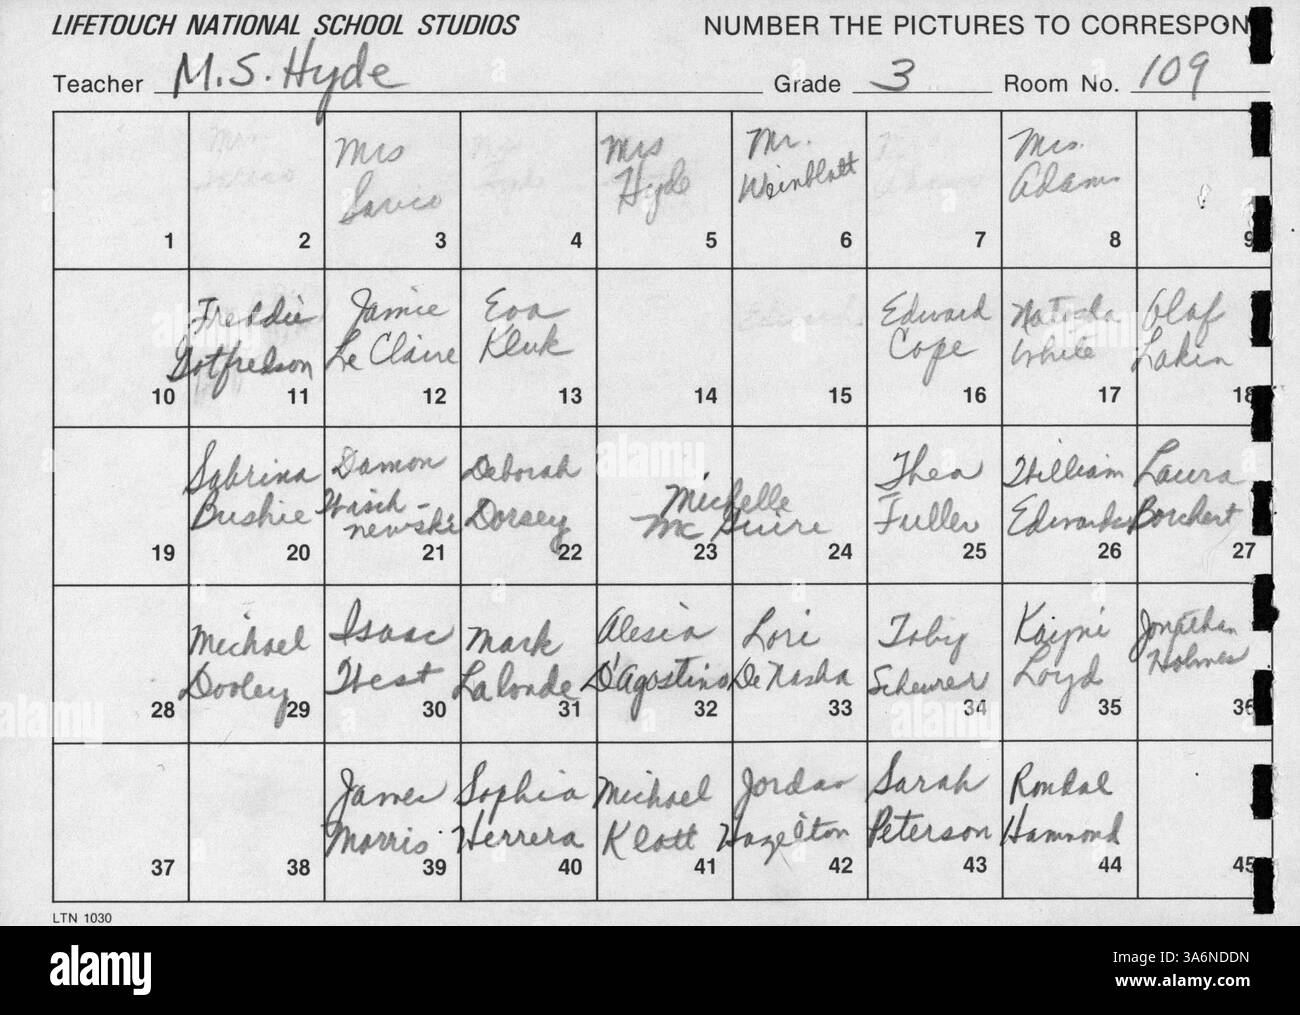 LIFETOUCH NATIONAL SCHOOL STUDIOS NUMBER THE PICTURES TO CORRESPON
Teacher M.S. Hyde Grade 3 Room No. 109
Mrs Savico
Mrs Hyde
Mr. Weinblatt
Mrs. Adams
1 2 3 4 5 6 7 8 9
Freddie Gotfredson
Jamie Le Claire
Eva Kluk
Edward Cope
Natosha White
Olaf Lakin
10 11 12 13 14 15 16 17 18
Sabrina Bushie
Damon Wisch-
newski
Deborah Dorsey
Michelle
Mc Guire
Thea Fuller
William Edwards
Laura Borchert
19 20 21 22 23 24 25 26 27
Michael Dooley
Isaac West
Mark Lalonde
Alesia D'Agostino
Lori DeNasha
Toby Scheurer
Kaijni Loyd
Jonathan Holmes
28 29 30 31 32 33 34 35 36
James Morris
Sophia Herrera
Michael Klott
Jordan Hazelton
Sarah Peterson
Rondal Hammond
37 38 39 40 41 42 43 44 45
LTN 1030
alamy
Image ID: 3A6NDDN
www.alamy.com